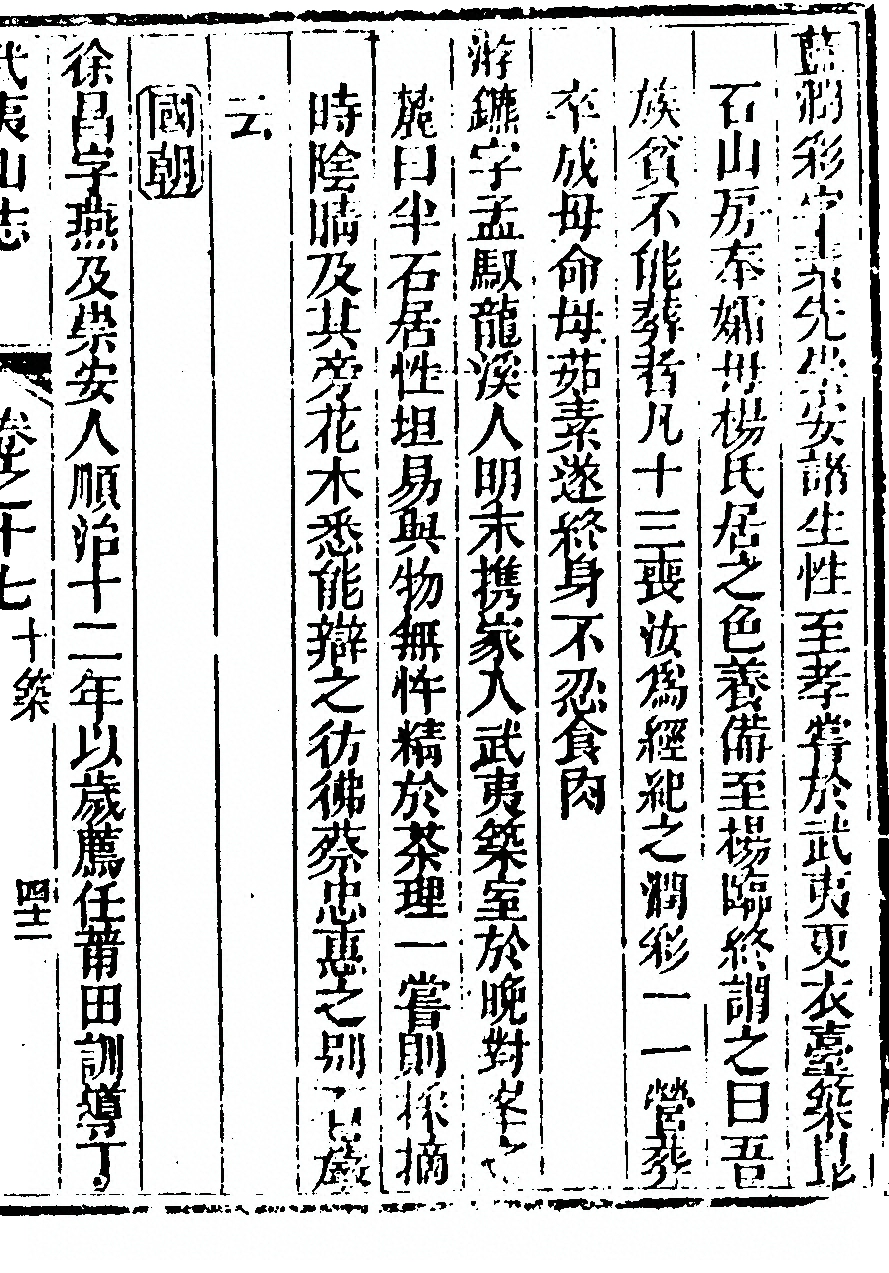 藍潤彩字 先崇安諸生性至孝嘗於武夷更衣臺築
石山房奉孀母楊氏居之色養備至楊臨終謂之曰吾
族貧不能葬者凡十三喪汝爲經紀之潤彩一一營葬
卒成母命母茹素遂終身不忍食肉
游鑣字孟馭龍溪人明末携家入武夷築室於晚對峯之
麓曰半石居性坦易與物無忤精於茶理一嘗則採摘
時陰晴及其旁花木悉能辯之彷彿蔡忠惠之別石巖
云
國朝
徐昌字燕及崇安人順治十二年以歲薦任莆田訓導丁
武夷山志 卷之十七 十築 四十二